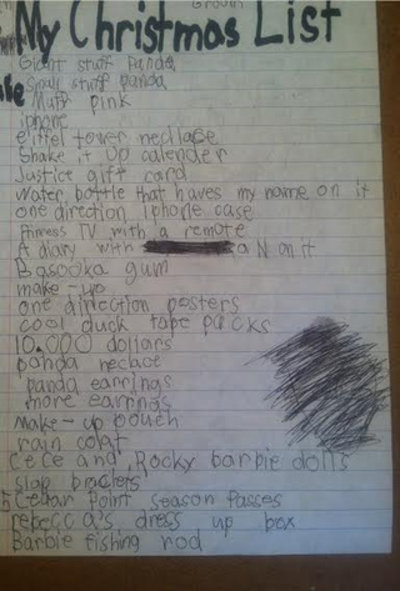 My Christmas List
Giant stuff panda
Small stuff panda
Muff pink
iphone
eiffel tower necklace
Shake it up calender
Justice gift card
water bottle that haves my name on it
one direction iphone case
Priness TV with a remote
A diary with a N on it
Basooka gum
make-up
one direction posters
cool duck tape packs
10,000 dollars
panda neclace
panda earrings
more earrings
make-up pouch
rain coat
cece and Rocky barbie dolls
slap braclets
5 Cedar Point season passes
rebecca's dress up box
Barbie fishing rod